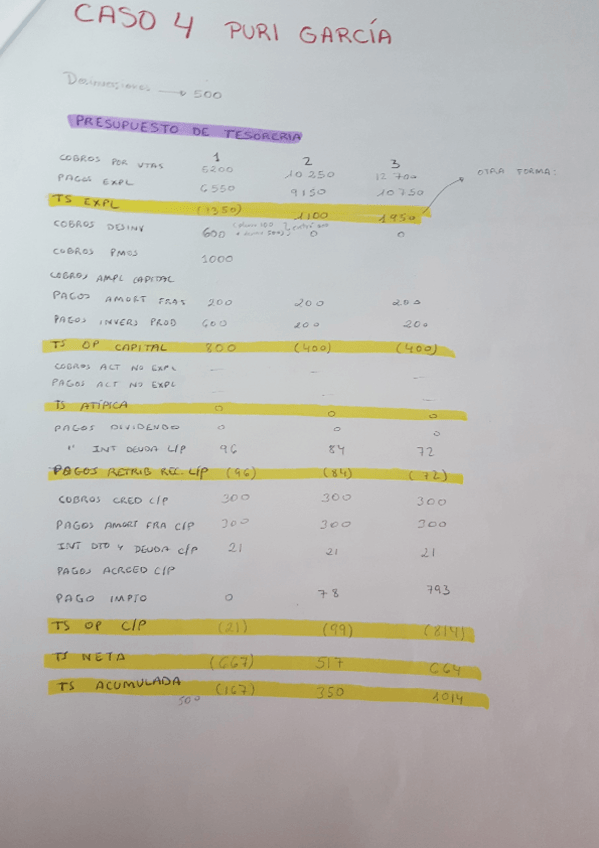 CASO 4 PURI GARCÍA
Desinversiones → 500
PRESUPUESTO DE TESORERIA
1 2 3
COBROS POR VTAS 5200 10 250 12 700
OTRA FORMA:
PAGOS EXPL 6550 9150 10750
TS EXPL (1350) 1100 1950
COBROS DESINV 600 0 0
COBROS PMOS 1000
COBROS AMPL CAPITAL
PAGOS AMORT FRAS 200 200 200
PAGOS INVERS PROD 600 200 200
TS OP CAPITAL 800 (400) (400)
COBROS ACT NO EXPL — — —
PAGOS ACT NO EXPL — — —
TS ATÍPICA 0 0 0
PAGOS DIVIDENDO 0 0 0
" INT DEUDA L/P 96 84 72
PAGOS RETRIB REC. L/P (96) (84) (72)
COBROS CRED C/P 300 300 300
PAGOS AMORT FRA C/P 300 300 300
INT DTO Y DEUDA C/P 21 21 21
PAGOS ACREED C/P
PAGO IMPTO 0 78 793
TS OP C/P (21) (99) (814)
TS NETA (667) 517 664
TS ACUMULADA (167) 350 1014
500